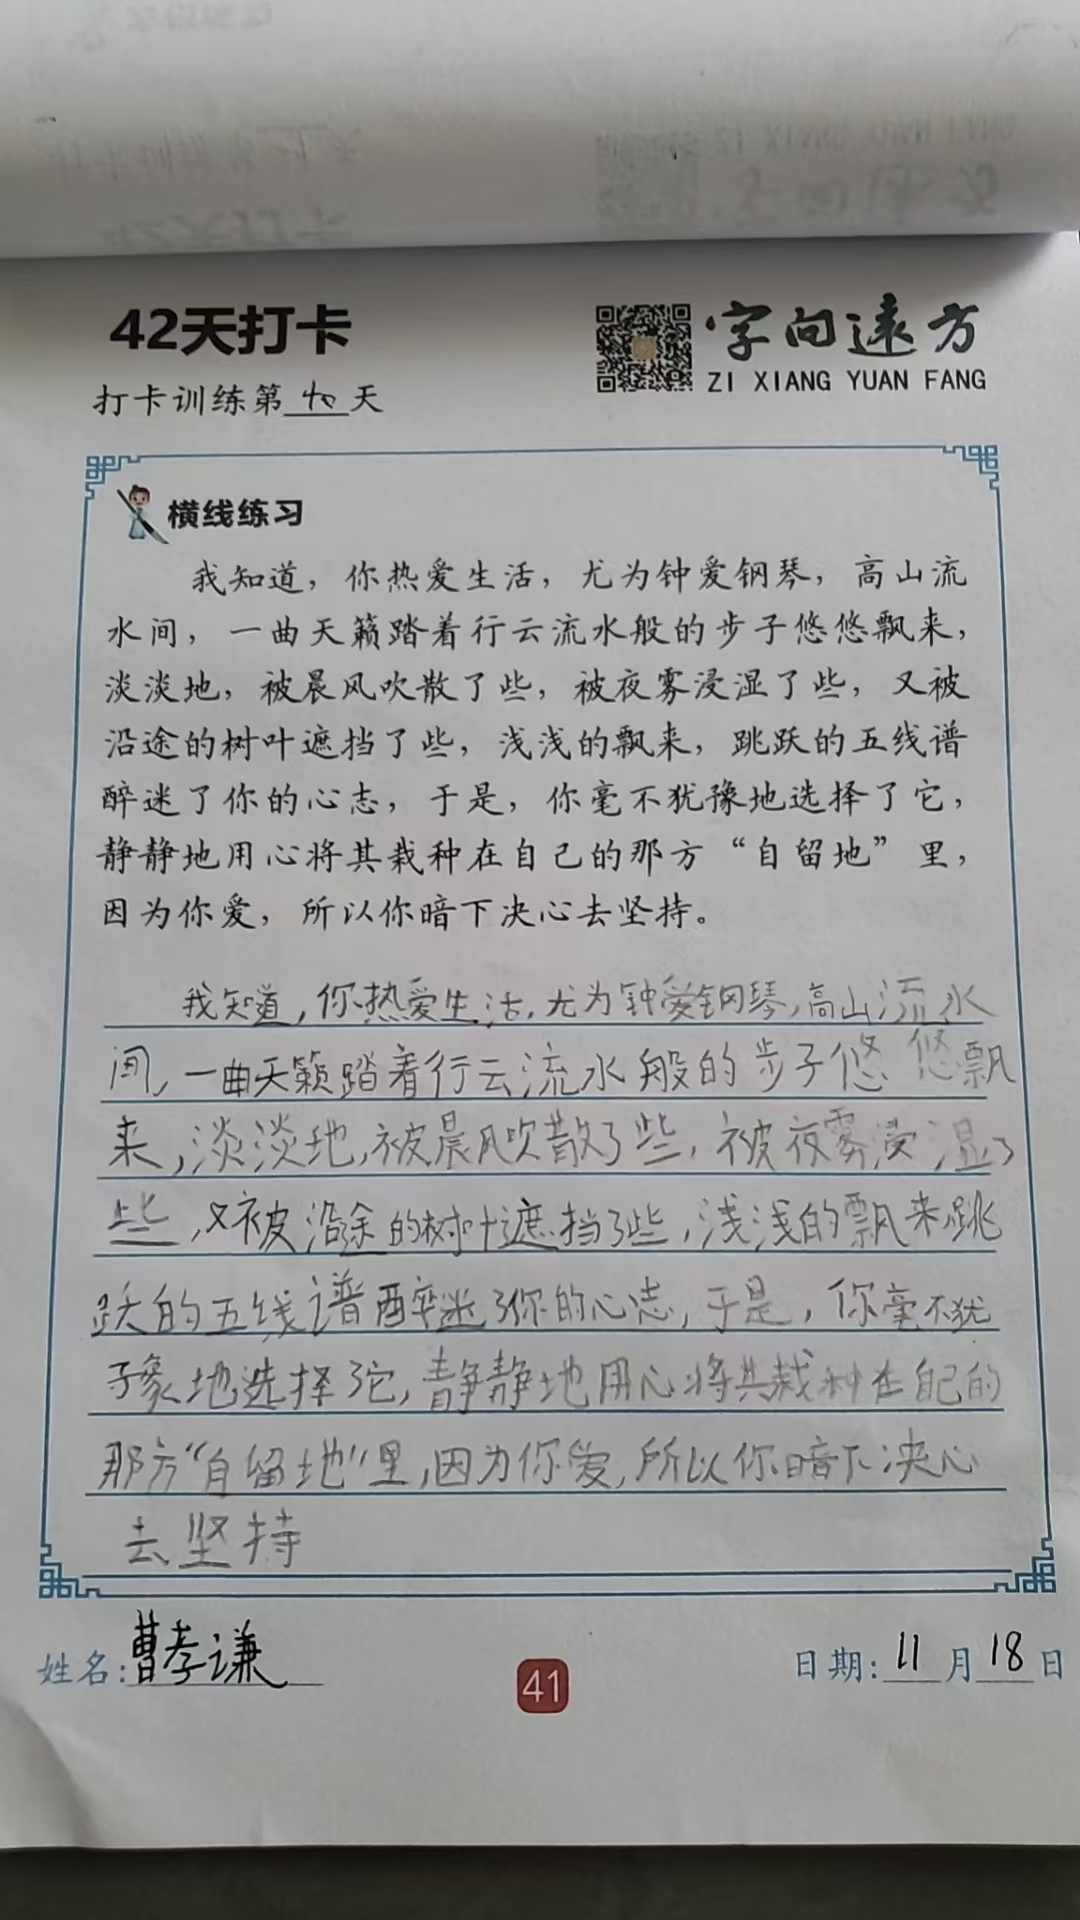 42天打卡
字向远方
ZI XIANG YUAN FANG
打卡训练第40天
横线练习
我知道，你热爱生活，尤为钟爱钢琴，高山流
水间，一曲天籁踏着行云流水般的步子悠悠飘来，
淡淡地，被晨风吹散了些，被夜雾浸湿了些，又被
沿途的树叶遮挡了些，浅浅的飘来，跳跃的五线谱
醉迷了你的心志，于是，你毫不犹豫地选择了它，
静静地用心将其栽种在自己的那方“自留地”里，
因为你爱，所以你暗下决心去坚持。
我知道，你热爱生活，尤为钟爱钢琴，高山流水
间，一曲天籁踏着行云流水般的步子悠悠飘
来，淡淡地，被晨风吹散了些，被夜雾浸湿了
些，又被沿途的树叶遮挡了些，浅浅的飘来，跳
跃的五线谱醉迷了你的心志，于是，你毫不犹
豫地选择了它，静静地用心将其栽种在自己的
那方“自留地”里，因为你爱，所以你暗下决心
去坚持
姓名：曹孝谦
41
日期：11月18日